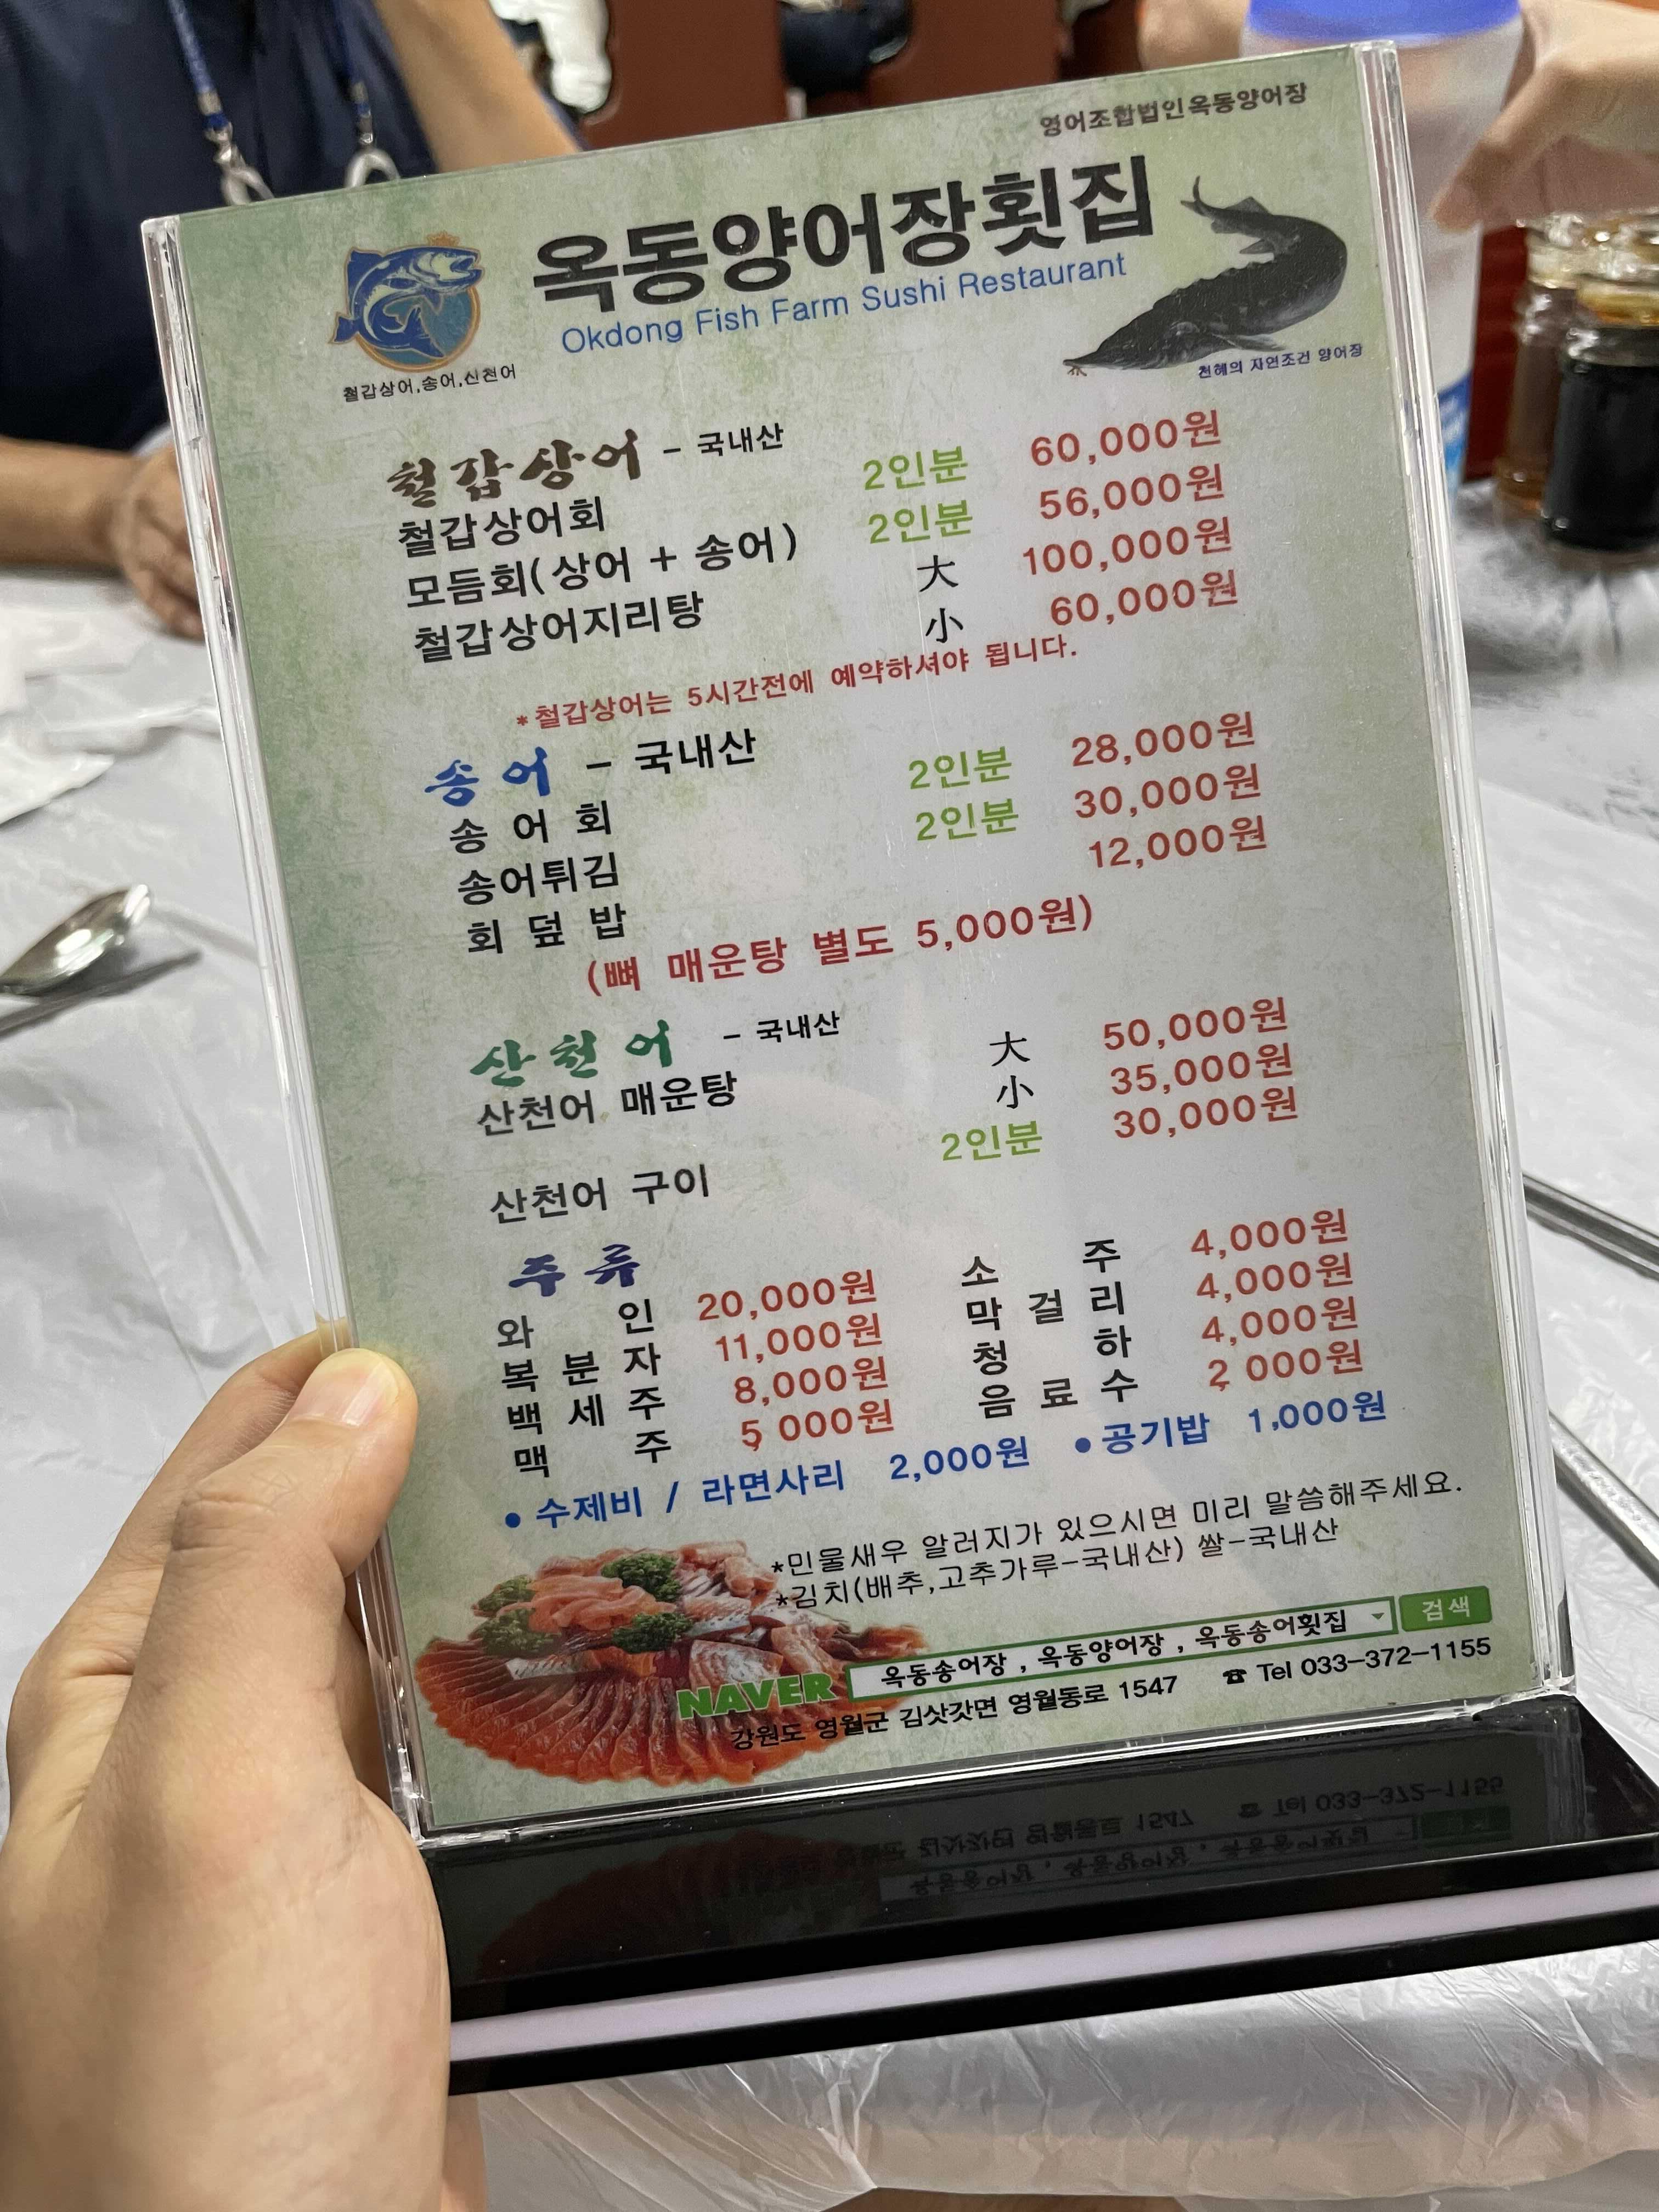 영어조합법인옥동양어장
옥동양어장횟집
Okdong Fish Farm Sushi Restaurant
철갑상어,송어,신천어
천혜의 자연조건 양어장
철갑상어 - 국내산
철갑상어회 2인분 60,000원
모듬회(상어 + 송어) 2인분 56,000원
철갑상어지리탕 大 100,000원
小 60,000원
*철갑상어는 5시간전에 예약하셔야 됩니다.
송어 - 국내산
송어회 2인분 28,000원
송어튀김 2인분 30,000원
회덮밥 12,000원
(뼈 매운탕 별도 5,000원)
산천어 - 국내산
산천어 매운탕 大 50,000원
小 35,000원
산천어 구이 2인분 30,000원
주류
와인 20,000원 소주 4,000원
복분자 11,000원 막걸리 4,000원
백세주 8,000원 청하 4,000원
맥주 5,000원 음료수 2,000원
• 수제비 / 라면사리 2,000원 • 공기밥 1,000원
*민물새우 알러지가 있으시면 미리 말씀해주세요.
*김치(배추,고추가루-국내산) 쌀-국내산
NAVER 옥동송어장 , 옥동양어장 , 옥동송어횟집 검색
강원도 영월군 김삿갓면 영월동로 1547 ☎ Tel 033-372-1155